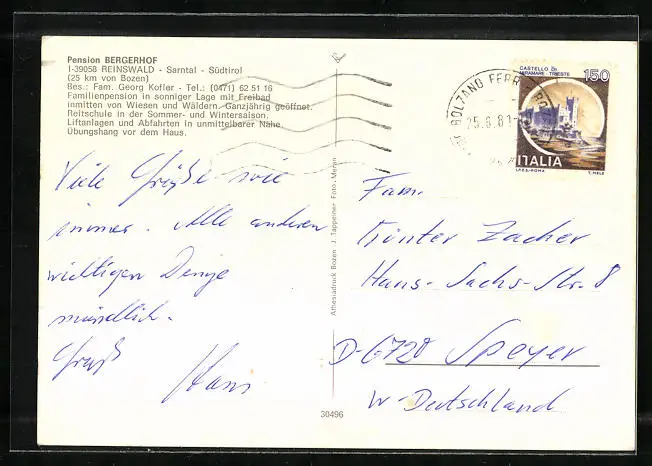 Pension BERGERHOF
I-39058 REINSWALD - Sarntal - Südtirol
(25 km von Bozen)
Bes.: Fam. Georg Kofler - Tel.: (0471) 62 51 16
Familienpension in sonniger Lage mit Freibad
inmitten von Wiesen und Wäldern. Ganzjährig geöffnet.
Reitschule in der Sommer- und Wintersaison.
Liftanlagen und Abfahrten in unmittelbarer Nähe.
Übungshang vor dem Haus.
Viele Grüße wie
immer. Alle anderen
wichtigen Dinge
mündlich.
Gruß
Hans
Athesiadruck Bozen J. Tappeiner Foto - Meran
30496
BOLZANO FERR
25.6.81
CASTELLO DI
MIRAMARE - TRIESTE
150
ITALIA
I.P.Z.S.-ROMA
T. MELE
Fam.
Günter Zacher
Hans-Sachs-Str. 8
D-6720 Speyer
W-Deutschland